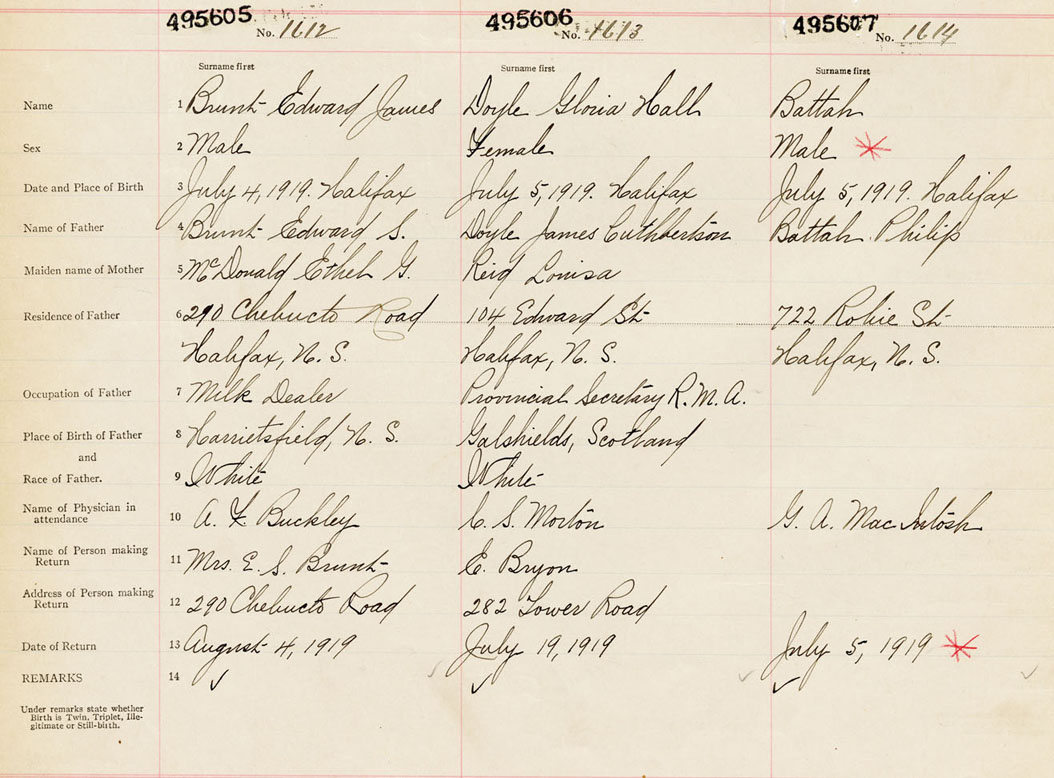 495605 No. 1612
495606 No. 1613
495607 No. 1614
Surname first Surname first Surname first
Name 1 Brunt Edward James Doyle Gloria Hall Battah
Sex 2 Male Female Male
Date and Place of Birth 3 July 4, 1919. Halifax July 5, 1919. Halifax July 5, 1919. Halifax
Name of Father 4 Brunt Edward S. Doyle James Cuthbertson Battah Philip
Maiden name of Mother 5 McDonald Ethel G. Reid Louisa
Residence of Father 6 290 Chebucto Road 104 Edward St 722 Robie St
Halifax, N. S. Halifax, N. S. Halifax, N. S.
Occupation of Father 7 Milk Dealer Provincial Secretary R. M. A.
Place of Birth of Father 8 Harrietsfield, N. S. Galshields, Scotland
and
Race of Father. 9 White White
Name of Physician in attendance 10 A. F. Buckley C. S. Morton G. A. MacIntosh
Name of Person making Return 11 Mrs. E. S. Brunt E. Bryon
Address of Person making Return 12 290 Chebucto Road 282 Tower Road
Date of Return 13 August 4, 1919 July 19, 1919 July 5, 1919
REMARKS 14
Under remarks state whether
Birth is Twin, Triplet, Ille-
gitimate or Still-birth.